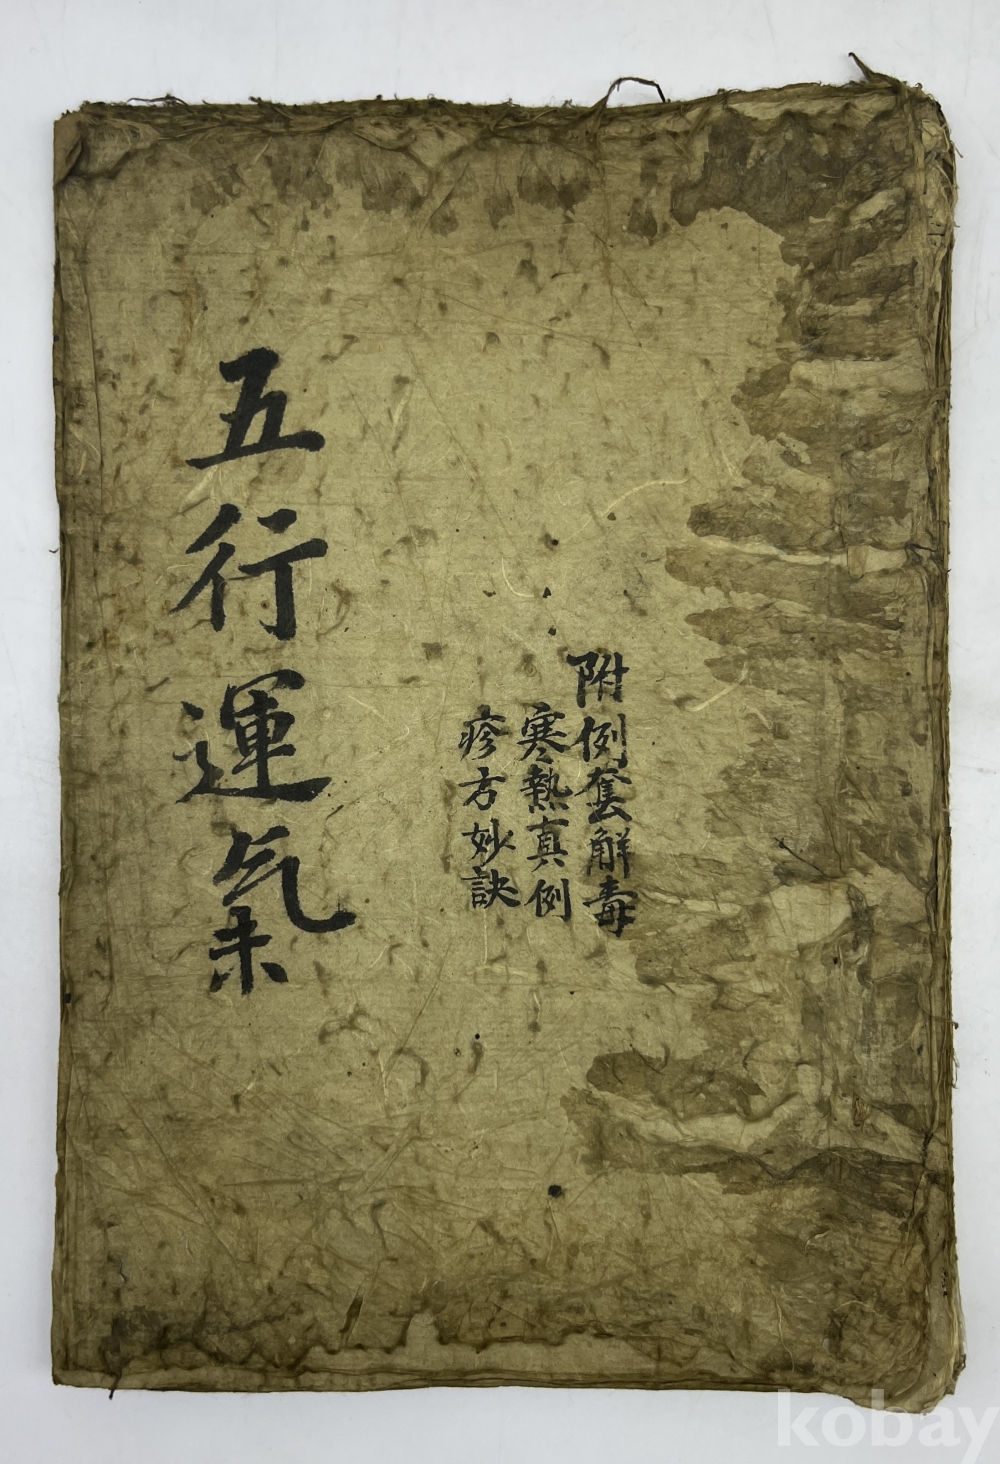 五行運氣
附例套解毒
寒熱真例
疹方妙訣
kobay